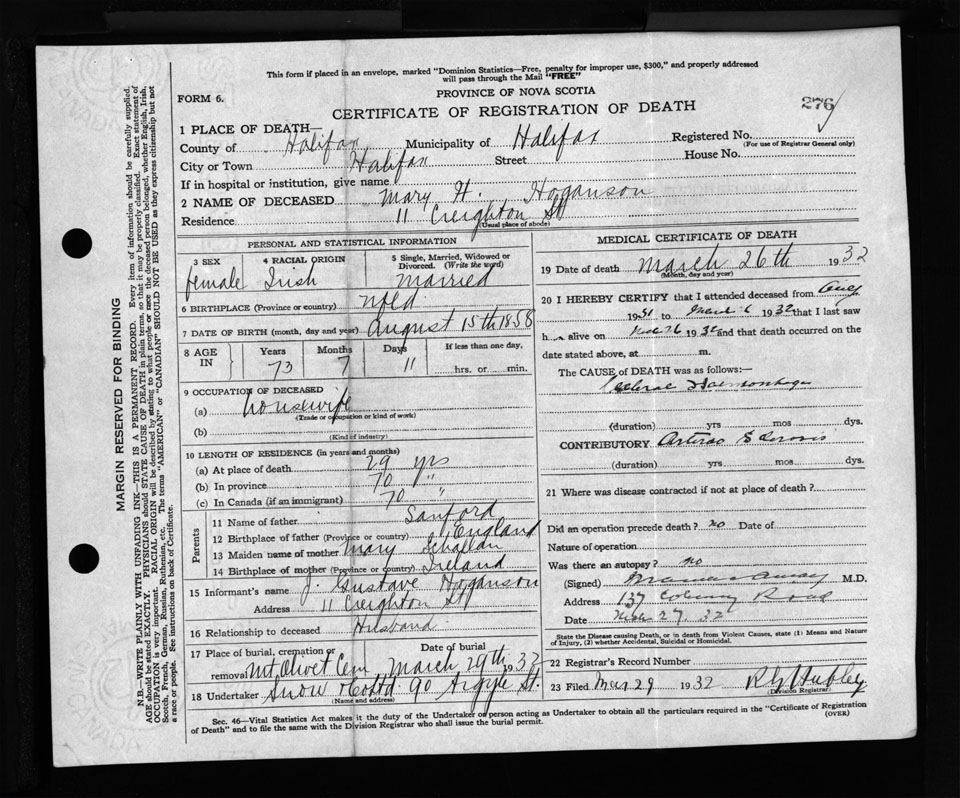 This form if placed in an envelope, marked "Dominion Statistics—Free, penalty for improper use, $300," and properly addressed
will pass through the Mail "FREE"
PROVINCE OF NOVA SCOTIA
FORM 6.
CERTIFICATE OF REGISTRATION OF DEATH
276
1 PLACE OF DEATH—
County of Halifax Municipality of Halifax Registered No.
(For use of Registrar General only)
City or Town Halifax Street House No.
If in hospital or institution, give name
2 NAME OF DECEASED Mary H. Hoganson
Residence 11 Creighton St
(Usual place of abode)
PERSONAL AND STATISTICAL INFORMATION
3 SEX 4 RACIAL ORIGIN 5 Single, Married, Widowed or Divorced. (Write the word)
female Irish Married
6 BIRTHPLACE (Province or country) Nfld
7 DATE OF BIRTH (month, day and year) August 15th 1858
8 AGE IN Years Months Days If less than one day,
73 7 11 hrs. or min.
9 OCCUPATION OF DECEASED
(a) housewife
(Trade or occupation or kind of work)
(b)
(Kind of industry)
10 LENGTH OF RESIDENCE (in years and months)
(a) At place of death 29 yrs
(b) In province 70 "
(c) In Canada (if an immigrant) 70 "
Parents
11 Name of father Sanford
12 Birthplace of father (Province or country) England
13 Maiden name of mother Mary
14 Birthplace of mother (Province or country) Ireland
15 Informant's name J. Gustave Hoganson
Address 11 Creighton St
16 Relationship to deceased Husband
17 Place of burial, cremation or removal Date of burial
Mt Olivet Cem March 29th 1932
18 Undertaker Snow & Co Ltd. 90 Argyle St.
(Name and address)
MEDICAL CERTIFICATE OF DEATH
19 Date of death March 26th 1932
(Month, day and year)
20 I HEREBY CERTIFY that I attended deceased from
1931 to March 1932 that I last saw
h alive on 26 1932 and that death occurred on the
date stated above, at m.
The CAUSE of DEATH was as follows:—
Haemorrhage
(duration) yrs mos dys.
CONTRIBUTORY Arterio Sclerosis
(duration) yrs mos dys.
21 Where was disease contracted if not at place of death?
Did an operation precede death? no Date of
Nature of operation
Was there an autopsy? no
(Signed) M.D.
Address 137 Road
Date 27. 32
State the Disease causing Death, or in death from Violent Causes, state (1) Means and Nature
of Injury, (2) whether Accidental, Suicidal or Homicidal.
22 Registrar's Record Number
23 Filed Mar 29 1932 Hubley
Division Registrar
Sec. 46—Vital Statistics Act makes it the duty of the Undertaker or person acting as Undertaker to obtain all the particulars required in the "Certificate of Registration
of Death" and to file the same with the Division Registrar who shall issue the burial permit.
(OVER)
MARGIN RESERVED FOR BINDING
N.B.—WRITE PLAINLY WITH UNFADING INK—THIS IS A PERMANENT RECORD. Every item of information should be carefully supplied.
AGE should be stated EXACTLY. PHYSICIANS should STATE CAUSE OF DEATH in plain terms, so that it may be properly classified. Exact statement of
OCCUPATION is very important. RACIAL ORIGIN will be described by stating to what people or race the deceased person belonged, whether English, Irish,
Scotch, French, German, Russian, Ruthenian, etc. The terms "AMERICAN" or "CANADIAN" SHOULD NOT BE USED as they express citizenship but not
a race or people. See instructions on back of Certificate.